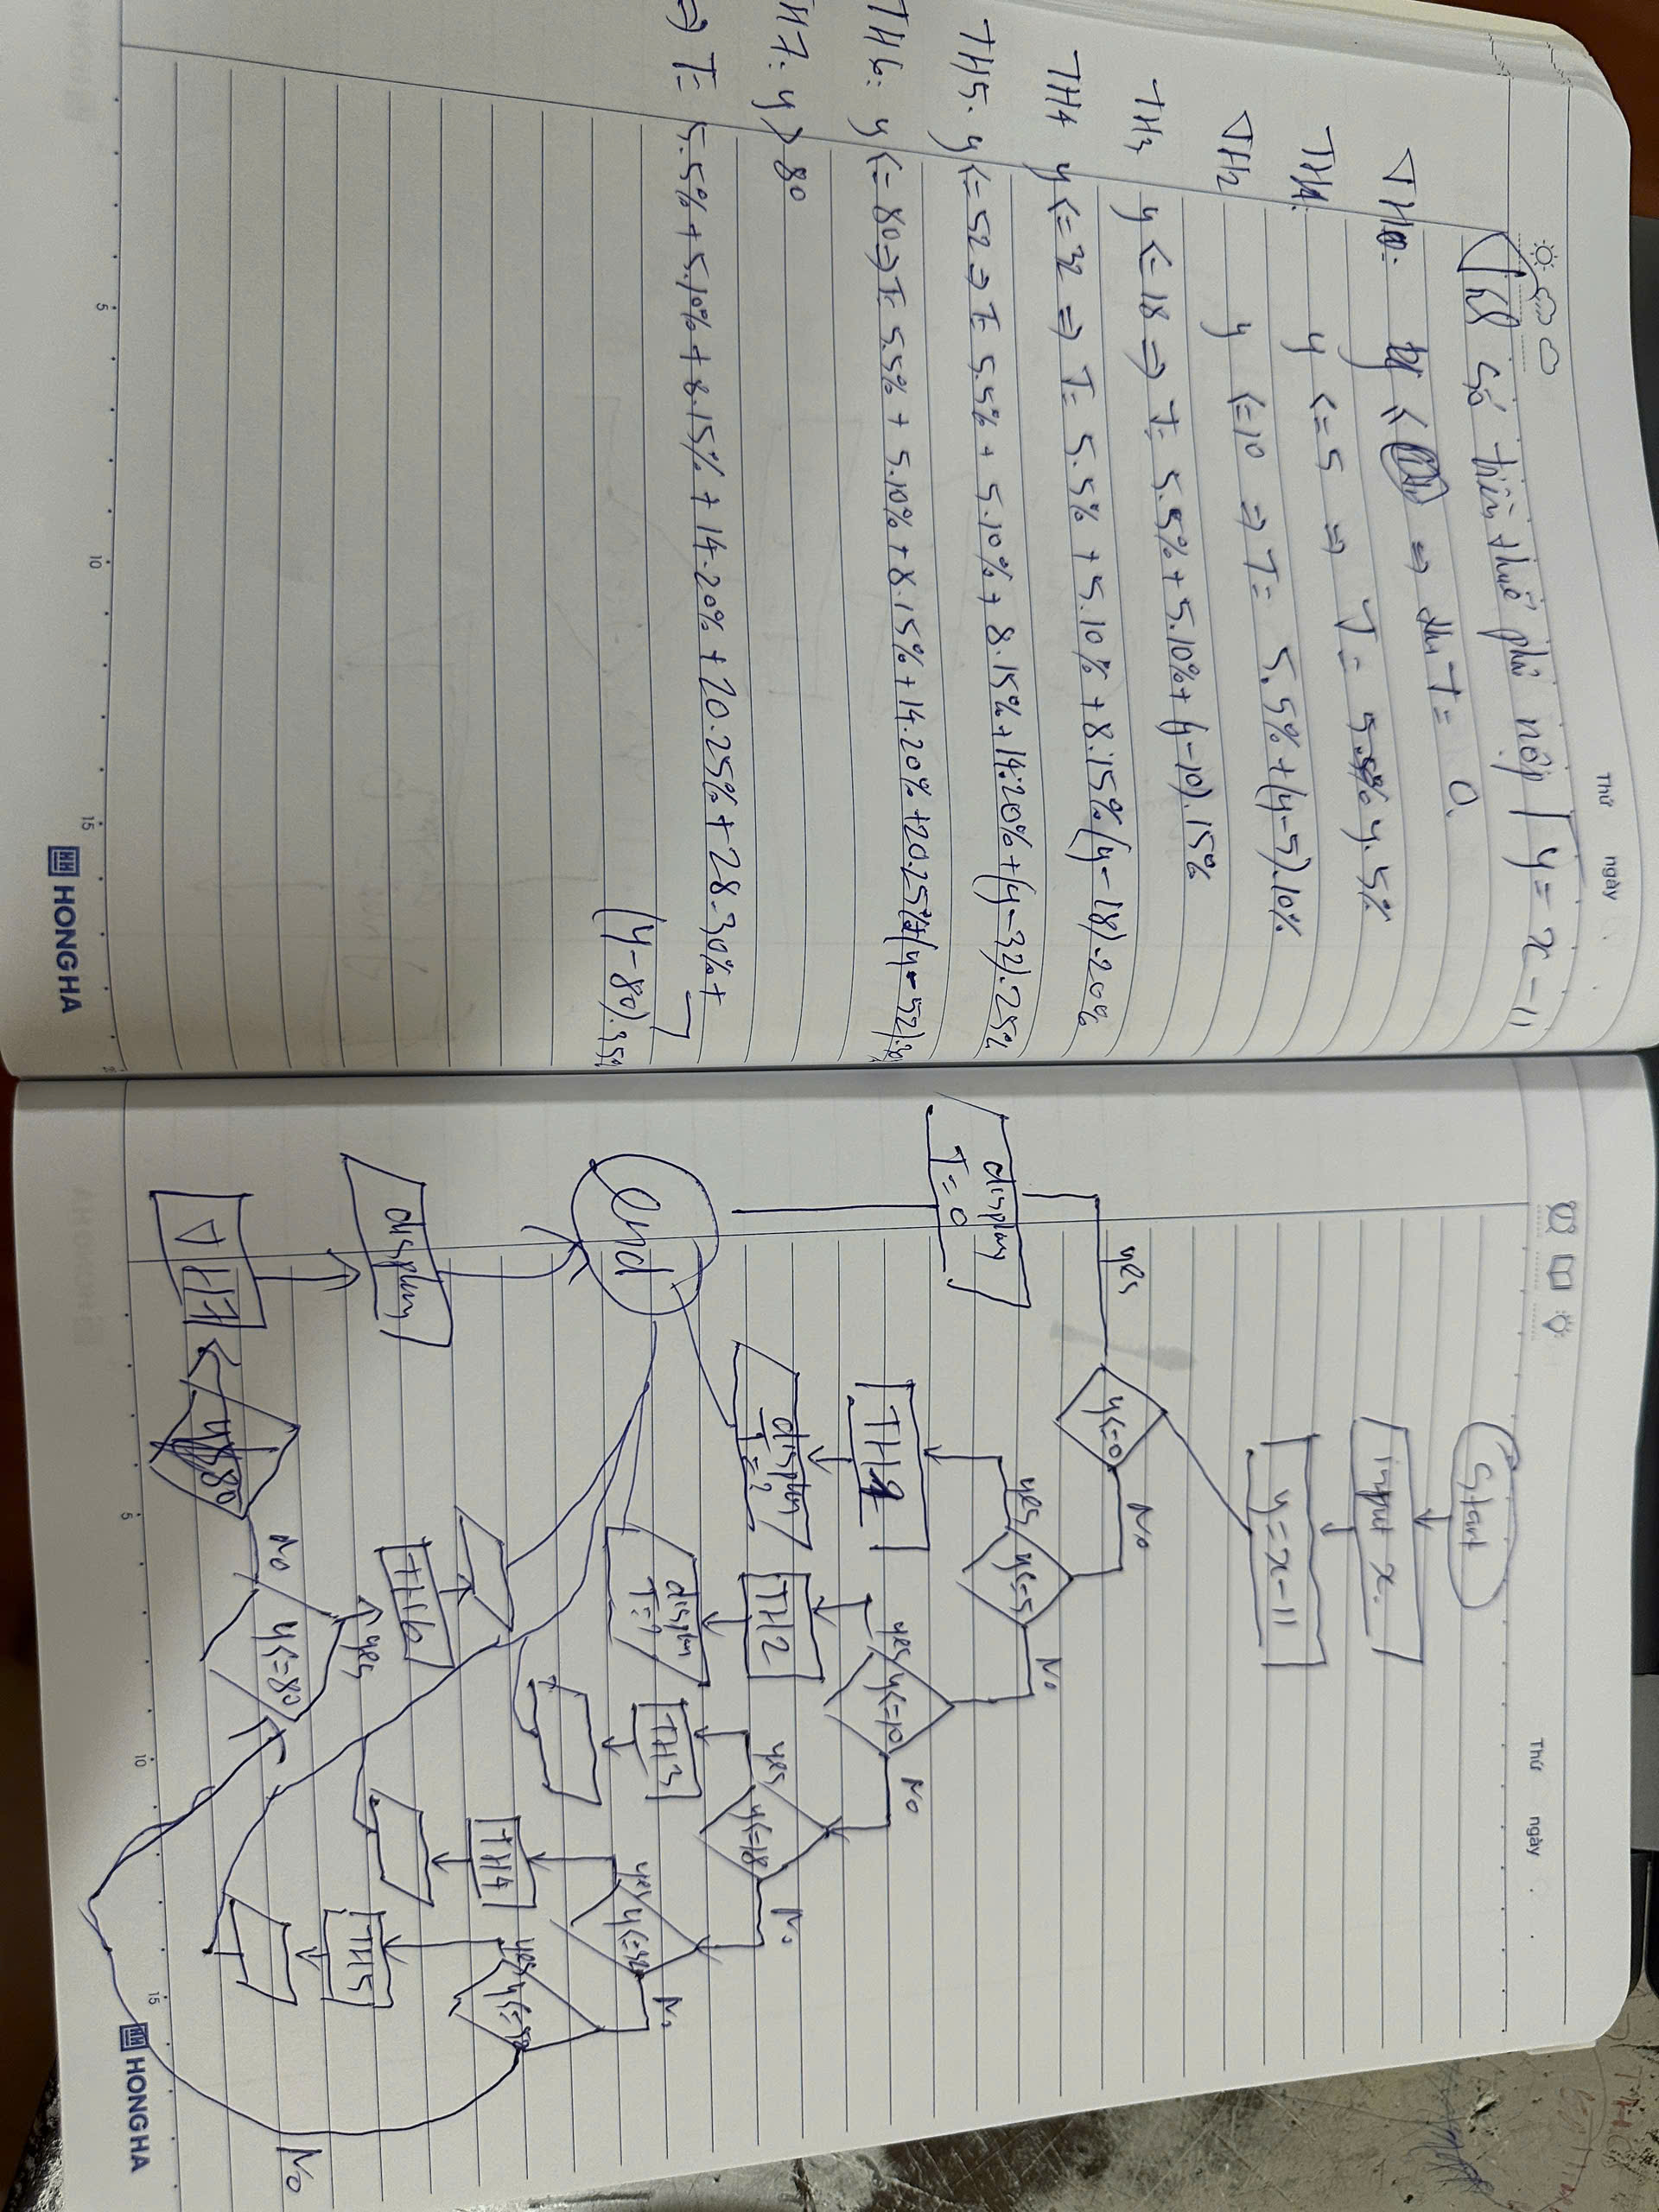 Thứ ngày
Gọi T là số tiền thuế phải nộp | y = x - 11
TH0: y <= 0 => T = 0.
TH1: y <= 5 => T = y.5%
TH2 y <= 10 => T = 5.5% + (y-5).10%
TH3 y <= 18 => T = 5.5% + 5.10% + (y-10).15%
TH4 y <= 32 => T = 5.5% + 5.10% + 8.15% (y-18).20%
TH5. y <= 52 => T = 5.5% + 5.10% + 8.15% + 14.20% + (y-32).25%
TH6: y <= 80 => T = 5.5% + 5.10% + 8.15% + 14.20% + 20.25% + (y-52).30%
TH7: y > 80
=> T = 5.5% + 5.10% + 8.15% + 14.20% + 20.25% + 28.30% +
(y-80).35%
5 10 15
HONG HA
Thứ ngày
Start
input x.
y = x - 11
yes y<=0 No
display
T = 0
yes y<=5 No
TH1
display
T = ?
yes y<=10 No
TH2
display
T = ?
yes y<=18 No
TH3
yes y<=32 No
TH4
yes y<=52 No
TH5
end
TH6
yes
y<=80
No
display
TH7
5 10 15
HONG HA